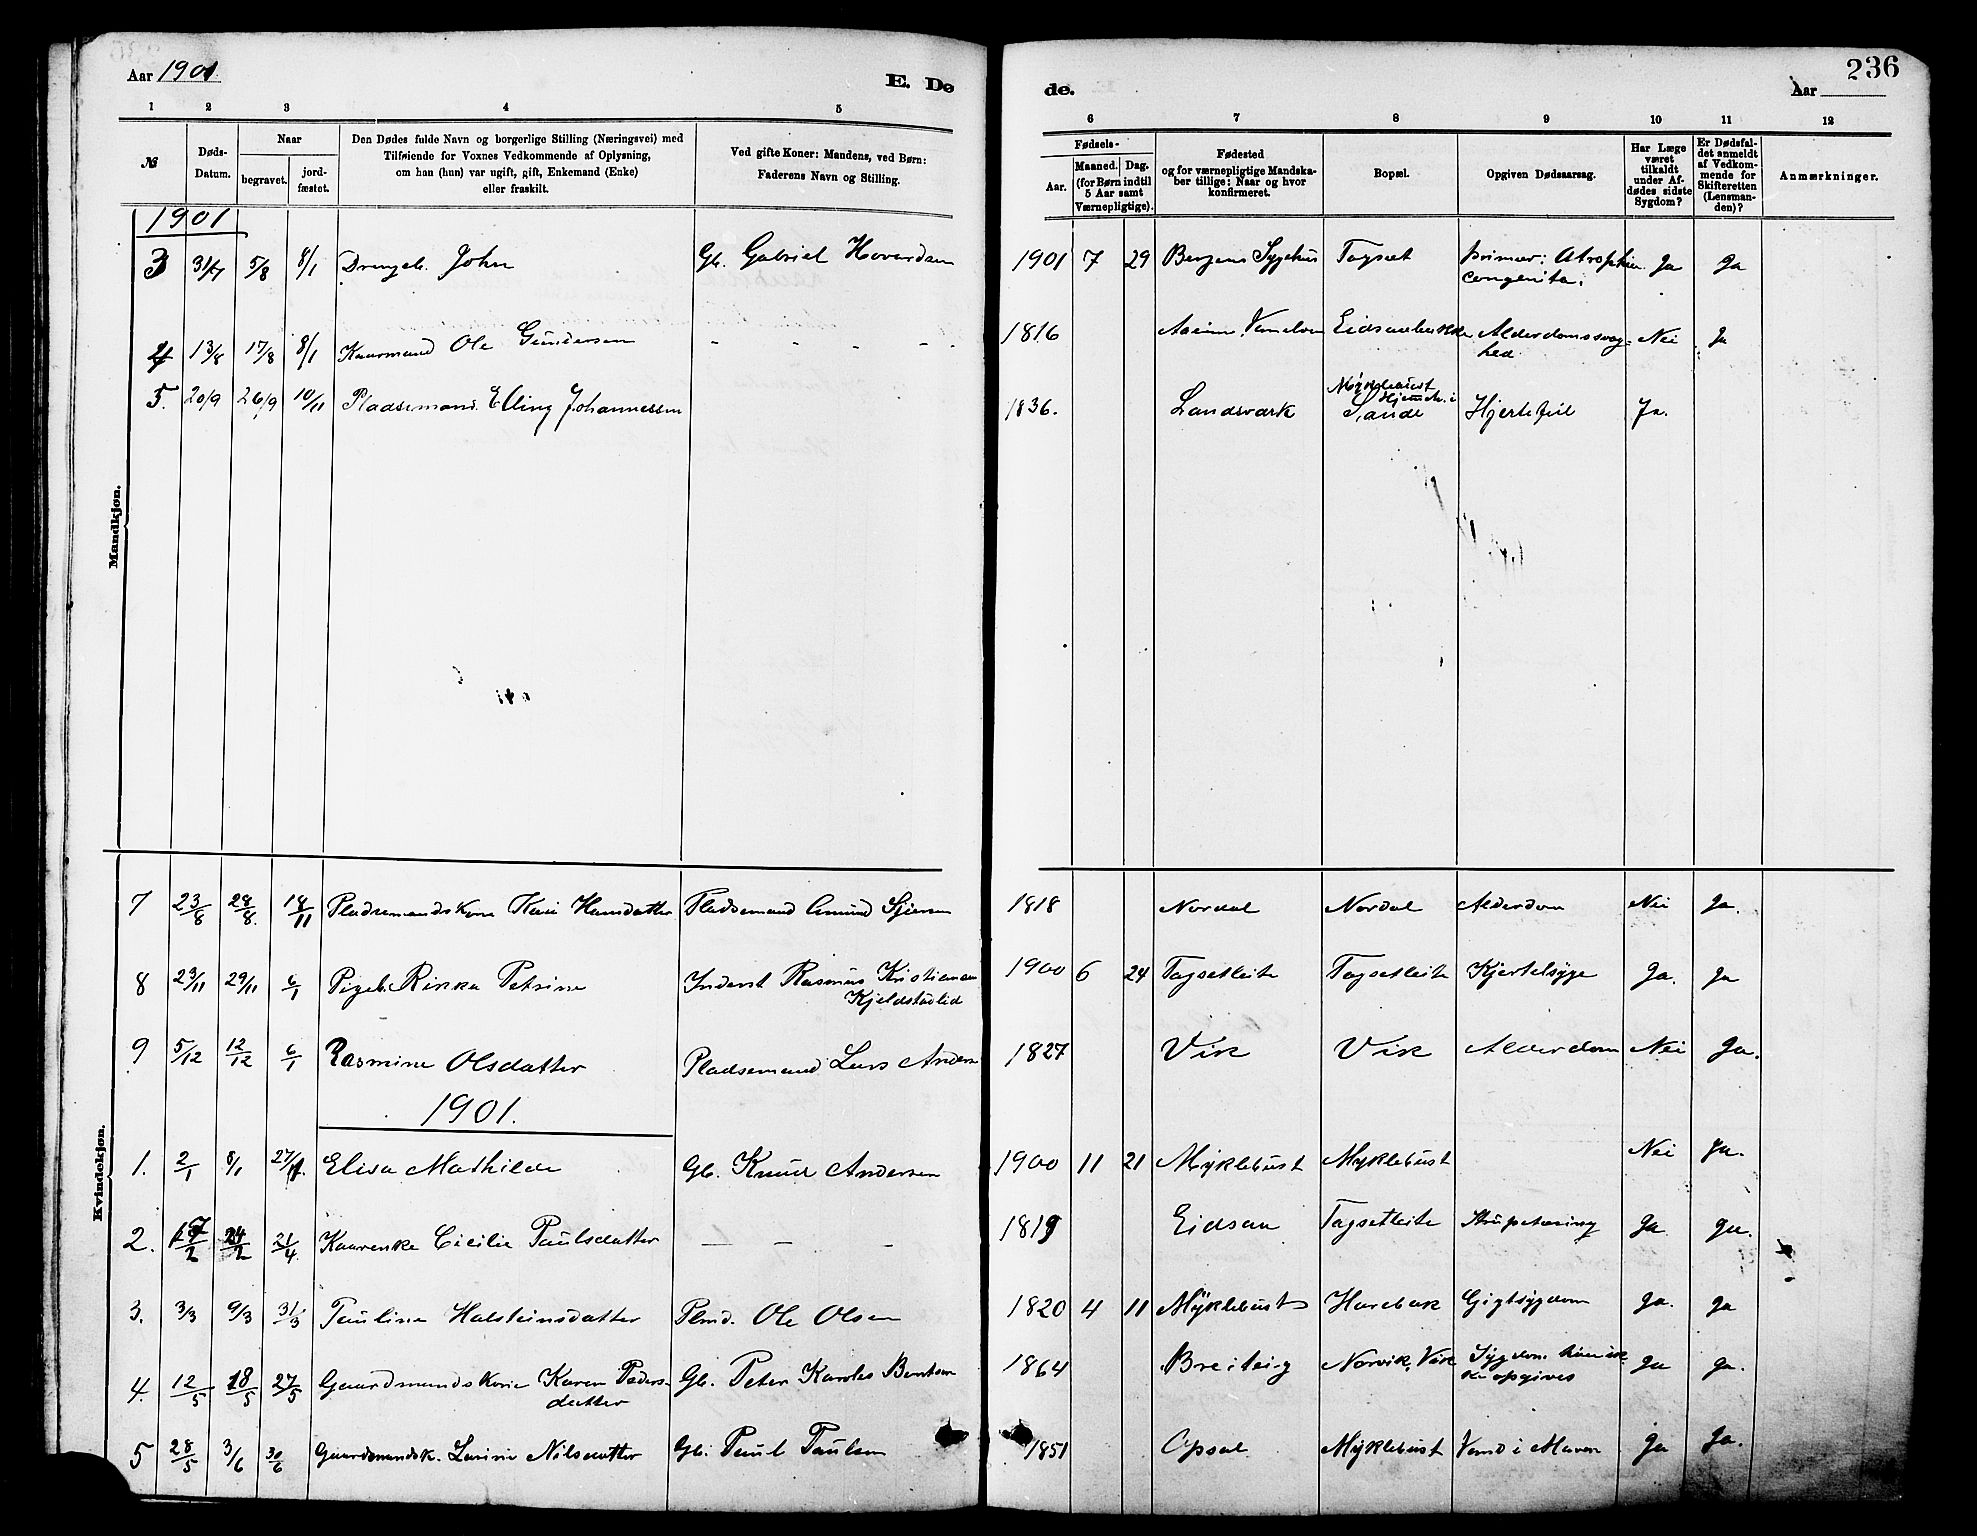 236
Aar 1901.
E. Dø
de.
Aar
1 2 3 4 5
6 7 8 9 10 11 12
№
Døds-
Datum.
Naar
begravet.
jord-
fæstet.
Den Dødes fulde Navn og borgerlige Stilling (Næringsvei) med
Tilføiende for Voxnes Vedkommende af Oplysning,
om han (hun) var ugift, gift, Enkemand (Enke)
eller fraskilt.
Ved gifte Koner: Mandens, ved Børn:
Faderens Navn og Stilling.
Fødsels-
Aar.
Maaned. Dag.
(for Børn indtil
5 Aar samt
Værnepligtige).
Fødested
og for værnepligtige Mandska-
ber tillige: Naar og hvor
konfirmeret.
Bopæl.
Opgiven Dødsaarsag.
Har Læge
været
tilkaldt
under Af-
dødes sidste
Sygdom?
Er Dødsfal-
det anmeldt
af Vedkom-
mende for
Skifteretten
(Lensman-
den)?
Anmærkninger.
Mandkjøn.
1901
3 31/7 5/8 8/1 Drengeb. John Gb. Gabriel Hoverdsen 1901 7 29 Bergens Sygehus Tagset primær: Atrophia Ja Ja
congenita.
4 13/8 17/8 8/1 Kaarmand Ole Gundersen - - - - - 1816 Vanelven Eidsaabakke Alderdomssvag- Nei Ja
hed
Myklebust
5. 20/9 26/9 10/11 Pladsemand. Elling Johannessen 1836. Landsvark Sande Hjertefeil Ja.
Kvindekjøn.
7 23/8 28/8. 14/11 Pladsemandskone Kari Hansdatter Pladsemand Amund 1818 Nordal Nordal Alderdom Nei Ja.
8 23/11 29/11 6/1 Pigeb. Rikka Petrine Inderst Rasmus Kristiansen 1900 6 24 Tagsetleite Tagsetleite Kjertelsyge Ja. Ja
Kjeldstadlid
9 5/12 12/12 6/1 Rasmine Olsdatter Pladsemand Lars Anders 1827 Vik Vik Alderdom Nei Ja.
1901.
1. 2/1 8/1 Elisa Mathilde Gb. Knud Andersen 1900 11 21 Myklebust Myklebust Nei Ja.
2. 17/2 24/2 21/4 Kaarenke Cicilie Paulsdatter - - - 1819 Eidsaa Tagsetleite Strupetæring Ja. Ja.
3. 3/3 9/3 31/3 Pauline Halsteinsdatter Plmd. Ole Olsen 1820 4 11 Myklebust Harebak Gigtsygdom Ja. Ja
4. 12/5 18/5 27/5 Gaardmandskone Karen Peders- Gb. Peter Karolus Berntsen 1864 Breiteig Norvik, Vik Sygdom. ik- Ja Ja.
datter
ke opgives
5 28/5 3/6 30/6 Gaardmandsk. Larine Nilsdatter Gb. Paul Paulsen 1851 Opsal Myklebust Vand i Maven Ja Ja.